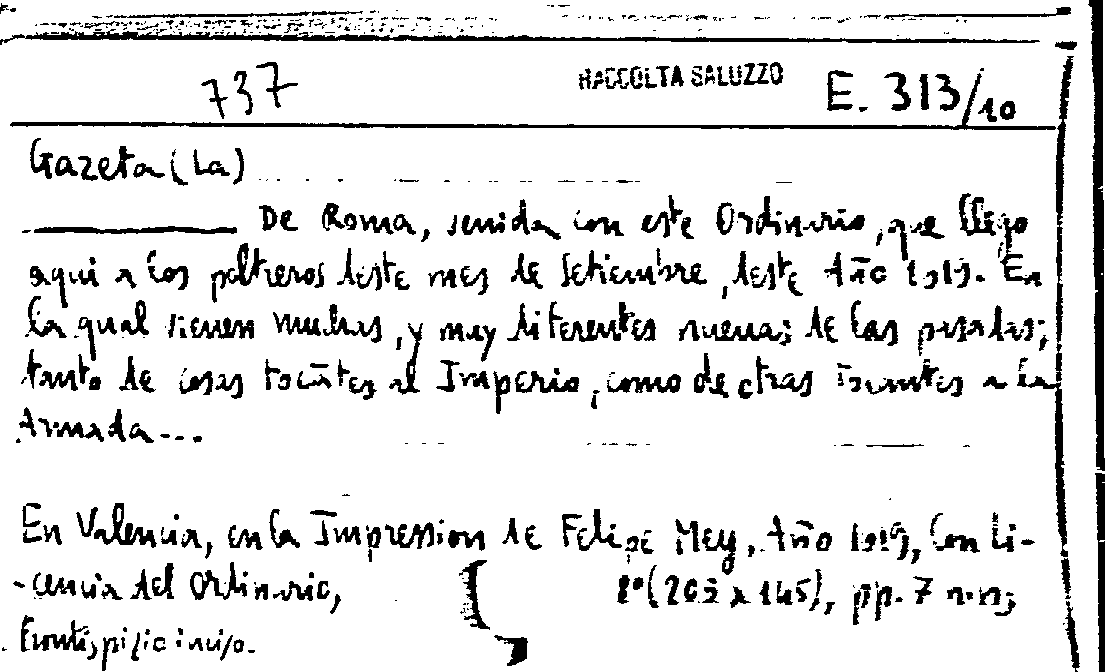 737 RACCOLTA SALUZZO E. 313/10
Gazeta (La)
De Roma, venida con este Ordinario, que llego
aqui a los postreros deste mes de Setiembre, deste Año 1619. En
la qual vienen muchas, y muy diferentes nuevas de las pasadas;
tanto de cosas tocātes al Imperio, como de otras tocantes a la
Armada...
En Valencia, en la Impression de Felipe Mey, Año 1619, Con li-
-cencia del Ordinario, 8º (205 x 145), pp. 7 n.n;
Frontispizio inciso.